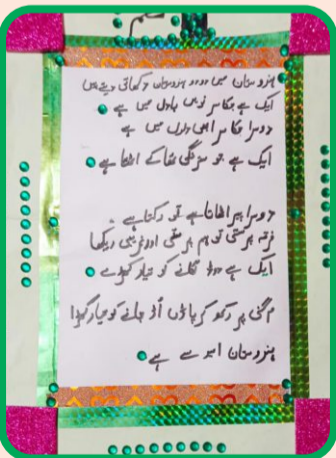 نظم
ہندوستان میں دو دو ہندوستان دکھائی دیتے ہیں
ایک ہے جس کا سر نویں بادل میں ہے
دوسرا جس کا سر ابھی دلدل میں ہے
ایک ہے جو ستگی تھا کے اٹھتا ہے
دوسرا پیر اٹھاتا ہے تو رکتا ہے
فرقہ پرستی تو ہم پرستی اور غریبی ریکھا
ایک ہے دوڑ لگانے کو تیار کھڑا ہے
اگنی پر رکھ کر پاؤں اُڑ جانے کو تیار کھڑا
ہندوستان امید سے ہے